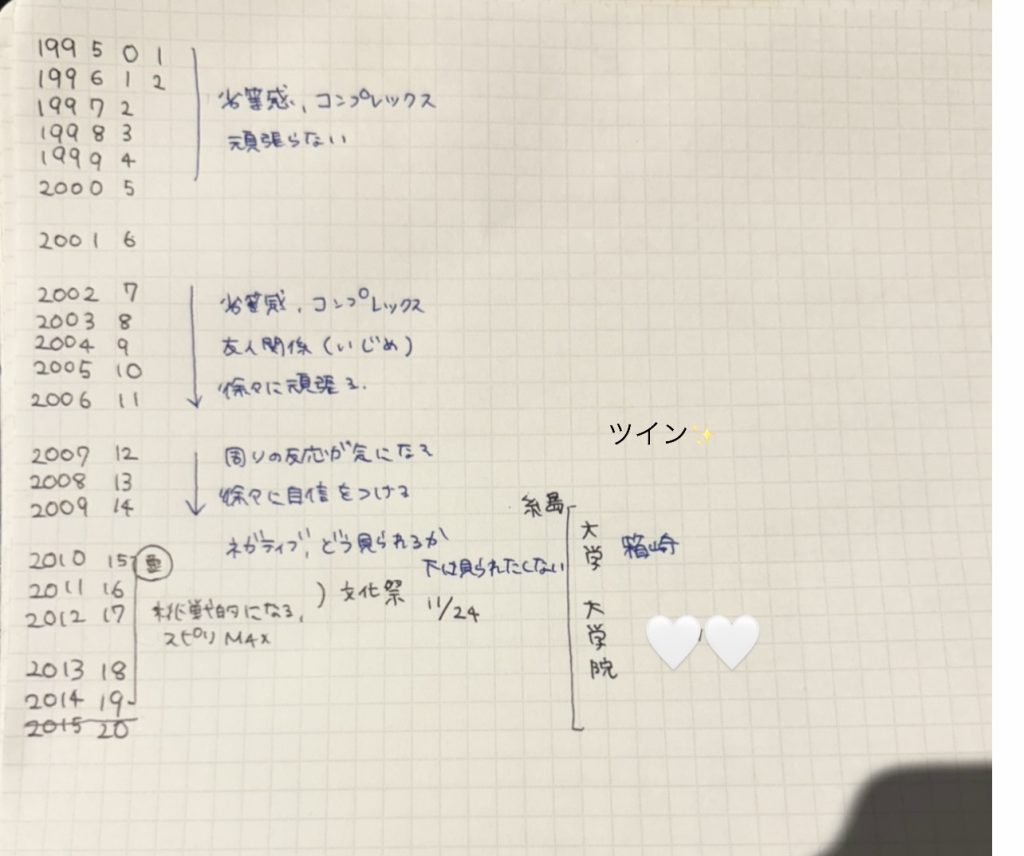 1995 0 1
1996 1 2
1997 2
1998 3
1999 4
2000 5
劣等感、コンプレックス
頑張らない
2001 6
2002 7
2003 8
2004 9
2005 10
2006 11
劣等感、コンプレックス
友人関係(いじめ)
徐々に頑張る.
2007 12
2008 13
2009 14
周りの反応が気になる
徐々に自信をつける
ネガティブ、どう見られるか
下は見られたくない
2010 15
2011 16
2012 17
挑戦的になる、
スピリMAX
文化祭
11/24
2013 18
2014 19
2015 20
ツイン✨
糸島
大学 箱崎
大学院